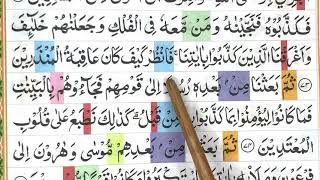 فَكَذَّبُوهُ فَنَجَّيْنٰهُ وَمَنْ مَّعَهٗ فِى الْفُلْكِ وَجَعَلْنٰهُمْ خَلٰٓئِفَ
وَاَغْرَقْنَا الَّذِيْنَ كَذَّبُوْا بِاٰيٰتِنَا ۚ فَانْظُرْ كَيْفَ كَانَ عَاقِبَةُ الْمُنْذَرِيْنَ
﴿٧٣﴾ ثُمَّ بَعَثْنَا مِنْۢ بَعْدِهٖ رُسُلًا اِلٰى قَوْمِهِمْ فَجَآءُوْهُمْ بِالْبَيِّنٰتِ
فَمَا كَانُوْا لِيُؤْمِنُوْا بِمَا كَذَّبُوْا بِهٖ مِنْ قَبْلُ ؕ كَذٰلِكَ نَطْبَعُ عَلٰى قُلُوْبِ
الْمُعْتَدِيْنَ ﴿٧٤﴾ ثُمَّ بَعَثْنَا مِنْۢ بَعْدِهِمْ مُّوْسٰى وَهٰرُوْنَ اِلٰى